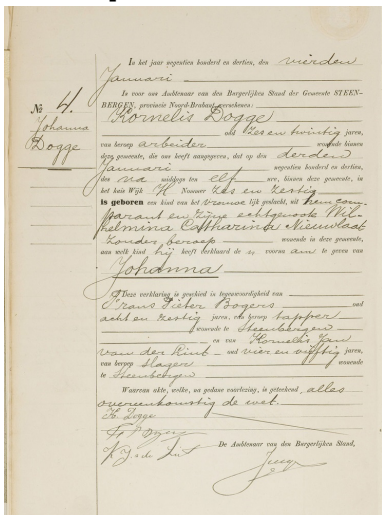 In het jaar negentien honderd en dertien, den vierden
Januari
is voor ons Ambtenaar van den Burgerlijken Stand der Gemeente STEEN-
BERGEN, provincie Noord-Brabant verschenen:
No 4.
Johanna
Dogge
Kornelis Dogge
oud zes en twintig jaren,
van beroep arbeider wonende binnen
deze gemeente, die ons heeft aangegeven, dat op den derden
Januari negentien honderd en dertien,
des na middags ten elf ure, binnen deze gemeente, in
het huis Wijk H Nommer zes en zestig
is geboren een kind van het vrouwelijk geslacht, uit hem com-
parant en zijne echtgenoote Wil-
helmina Catharina Nieuwlaat
zonder beroep wonende in deze gemeente,
aan welk kind hij heeft verklaard de voornaam te geven van
Johanna
Deze verklaring is geschied in tegenwoordigheid van
Frans Pieter Bogers oud
acht en zestig jaren, van beroep tapper
wonende te Steenbergen
en van Kornelis Jan
van der oud vier en vijftig jaren,
van beroep slager wonende
te Steenbergen
Waarvan akte, welke, na gedane voorlezing, is geteekend, alles
overeenkomstig de wet.
K. Dogge
De Ambtenaar van den Burgerlijken Stand,